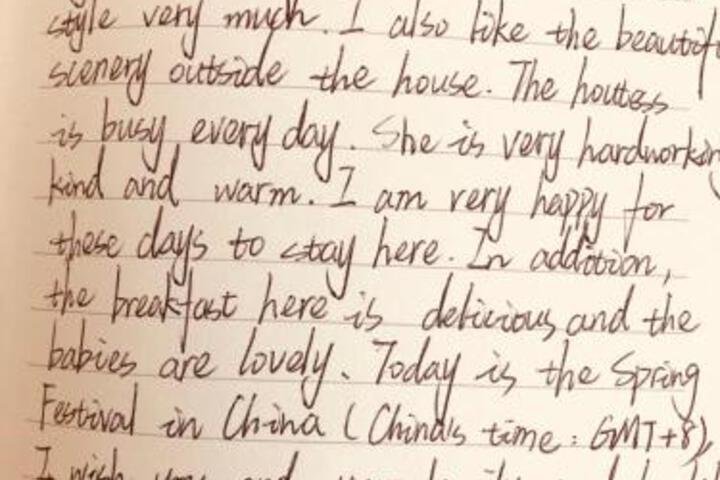 style very much. I also like the beautif
scenery outside the house. The houtess
is busy every day. She is very hardworkin
kind and warm. I am very happy for
these days to stay here. In addition,
the breakfast here is delicious and the
babies are lovely. Today is the Spring
Festival in China (China's time: GMT+8),
I wish you and